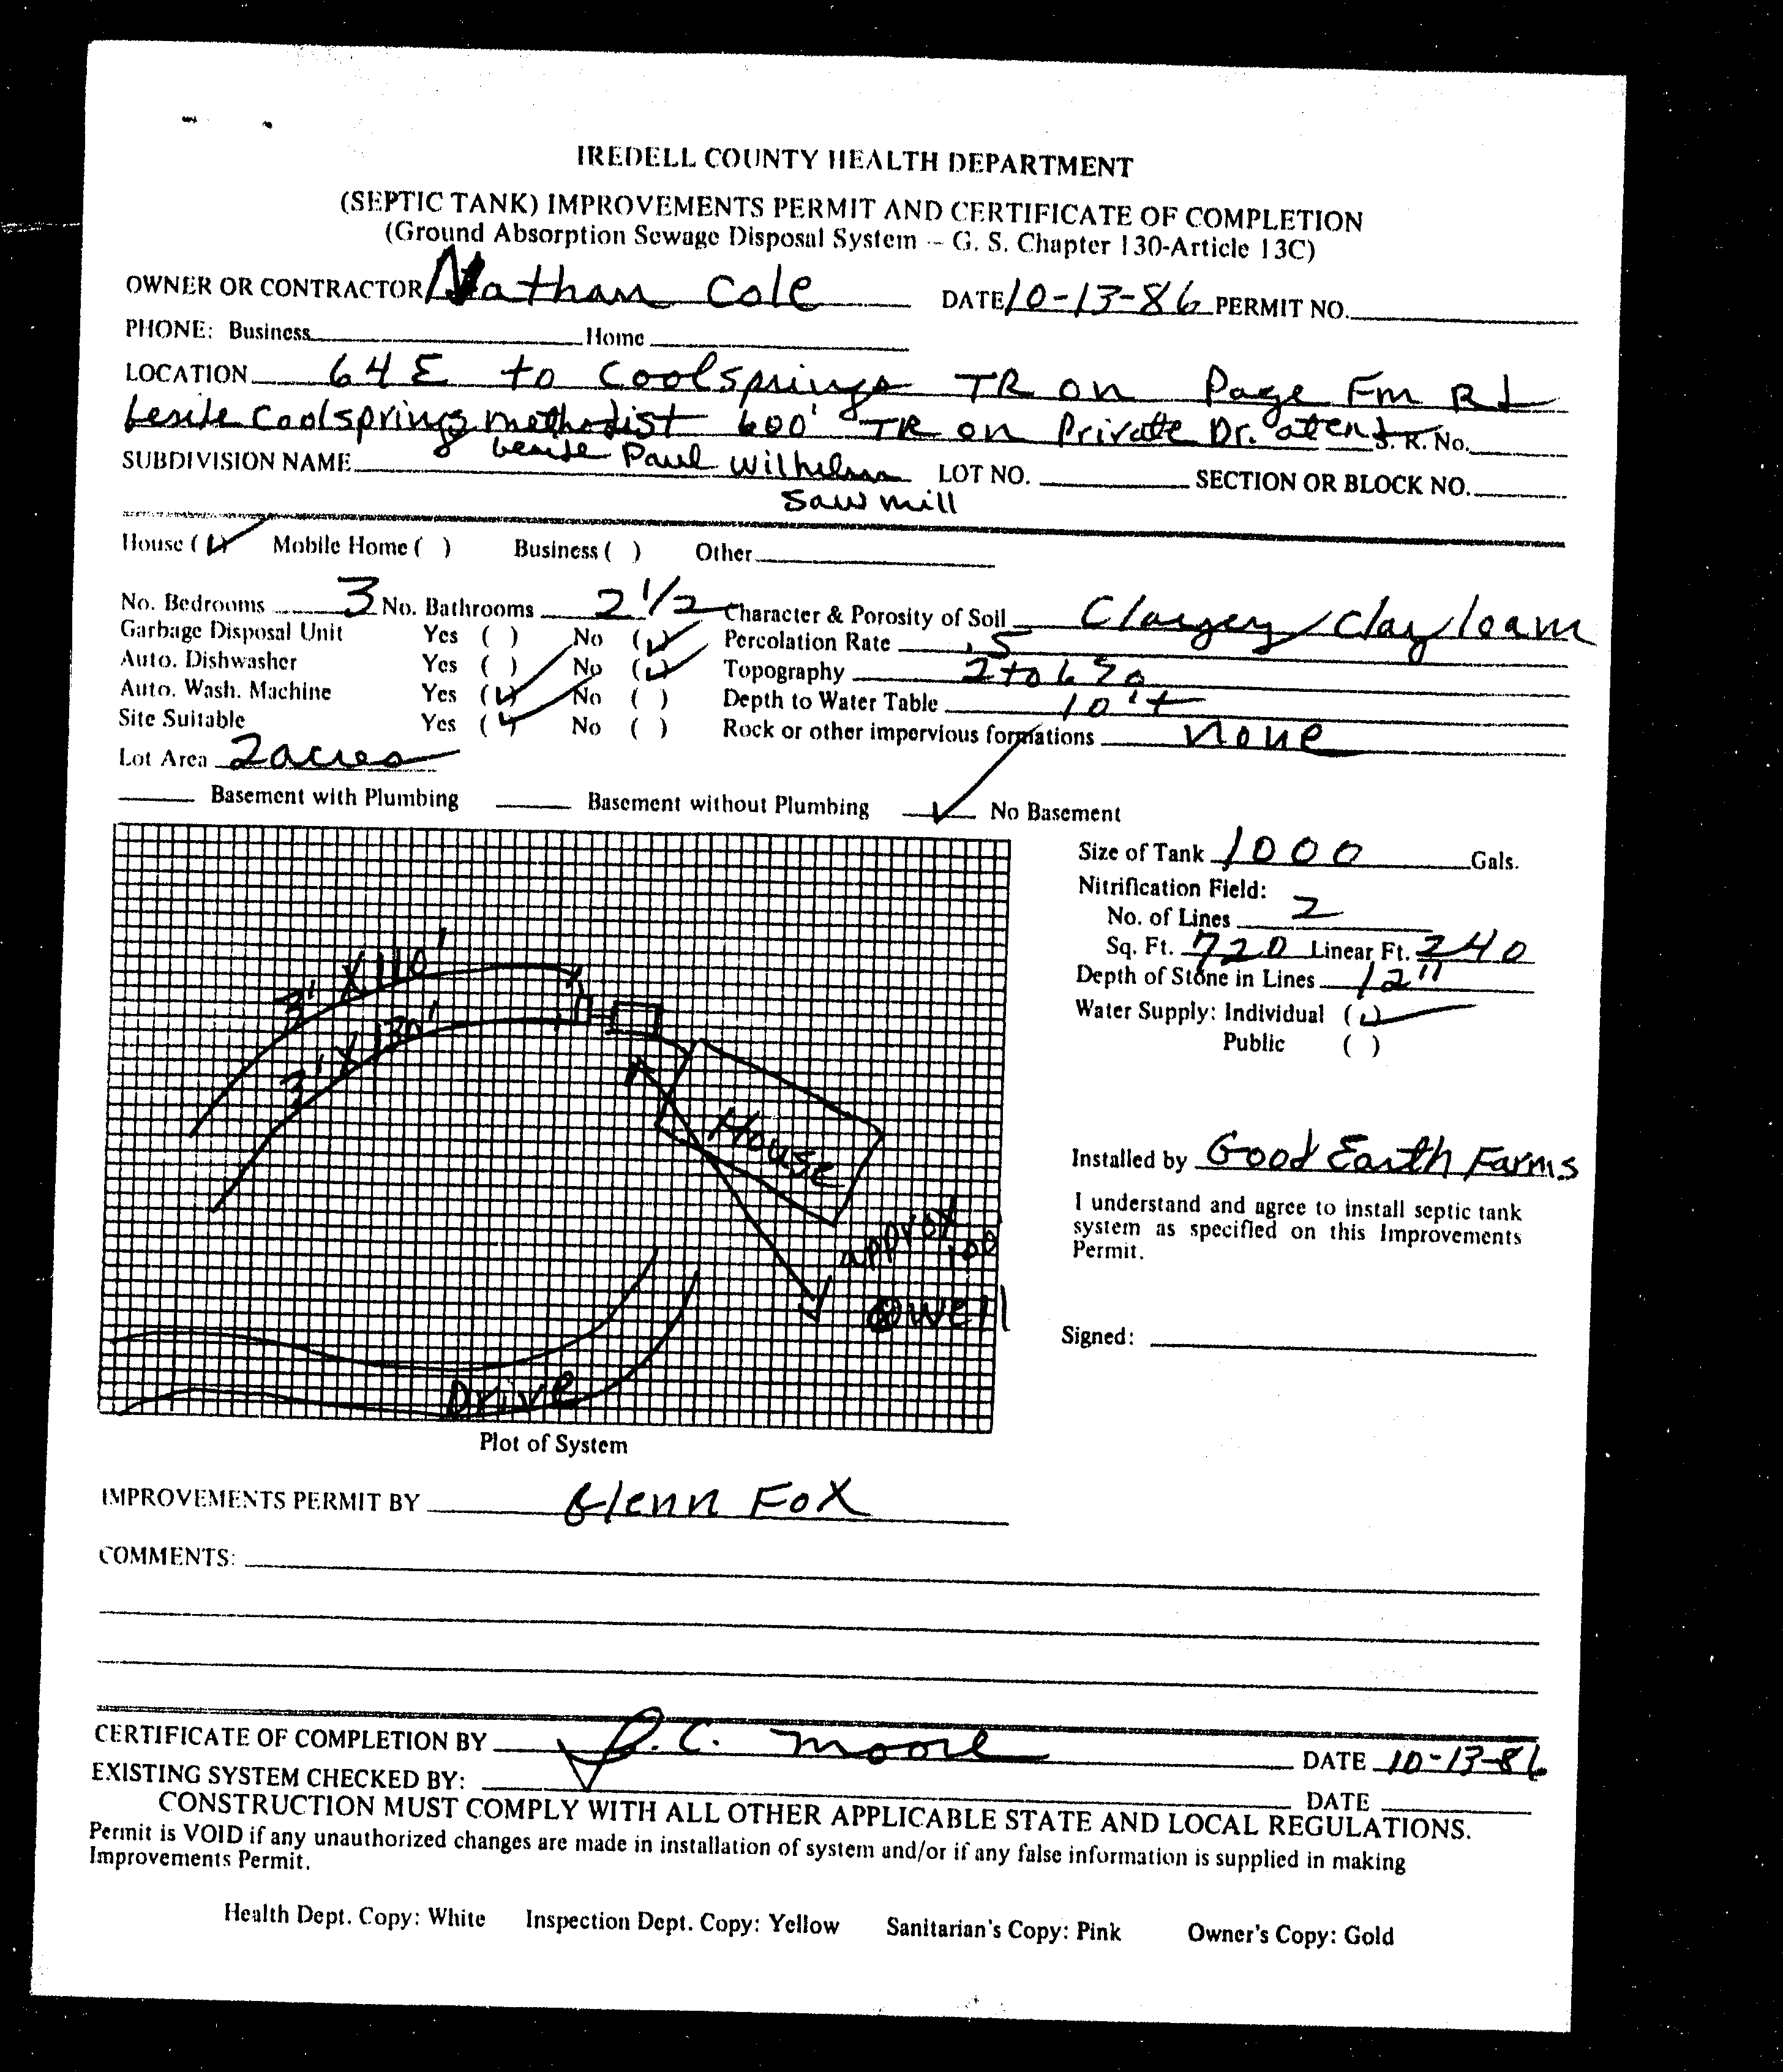 IREDELL COUNTY HEALTH DEPARTMENT
(SEPTIC TANK) IMPROVEMENTS PERMIT AND CERTIFICATE OF COMPLETION
(Ground Absorption Sewage Disposal System -- G. S. Chapter 130-Article 13C)
OWNER OR CONTRACTOR Nathan Cole DATE 10-13-86 PERMIT NO.
PHONE: Business Home
LOCATION 64 E to Coolsprings TR on Page Fm Rd
beside Coolsprings methodist 600' TR on Private Dr. at end S. R. No.
beside Paul Wilhelm
SUBDIVISION NAME LOT NO. SECTION OR BLOCK NO.
Saw mill
House (✓) Mobile Home ( ) Business ( ) Other
No. Bedrooms 3 No. Bathrooms 2 1/2 Character & Porosity of Soil Clayey/clay loam
Garbage Disposal Unit Yes ( ) No (✓) Percolation Rate .5
Auto. Dishwasher Yes ( ) No (✓) Topography 2 to 6%
Auto. Wash. Machine Yes (✓) No ( ) Depth to Water Table 10'+
Site Suitable Yes (✓) No ( ) Rock or other impervious formations none
Lot Area 2 acres
Basement with Plumbing Basement without Plumbing ✓ No Basement
Size of Tank 1000 Gals.
Nitrification Field:
No. of Lines 2
Sq. Ft. 720 Linear Ft. 240
Depth of Stone in Lines 12"
Water Supply: Individual (✓)
Public ( )
3' X 110'
3' X 130'
House
approx 100'
well
Drive
Installed by Good Earth Farms
I understand and agree to install septic tank
system as specified on this Improvements
Permit.
Signed:
Plot of System
IMPROVEMENTS PERMIT BY Glenn Fox
COMMENTS:
CERTIFICATE OF COMPLETION BY C. Moore DATE 10-13-86
EXISTING SYSTEM CHECKED BY: DATE
CONSTRUCTION MUST COMPLY WITH ALL OTHER APPLICABLE STATE AND LOCAL REGULATIONS.
Permit is VOID if any unauthorized changes are made in installation of system and/or if any false information is supplied in making
Improvements Permit.
Health Dept. Copy: White Inspection Dept. Copy: Yellow Sanitarian's Copy: Pink Owner's Copy: Gold